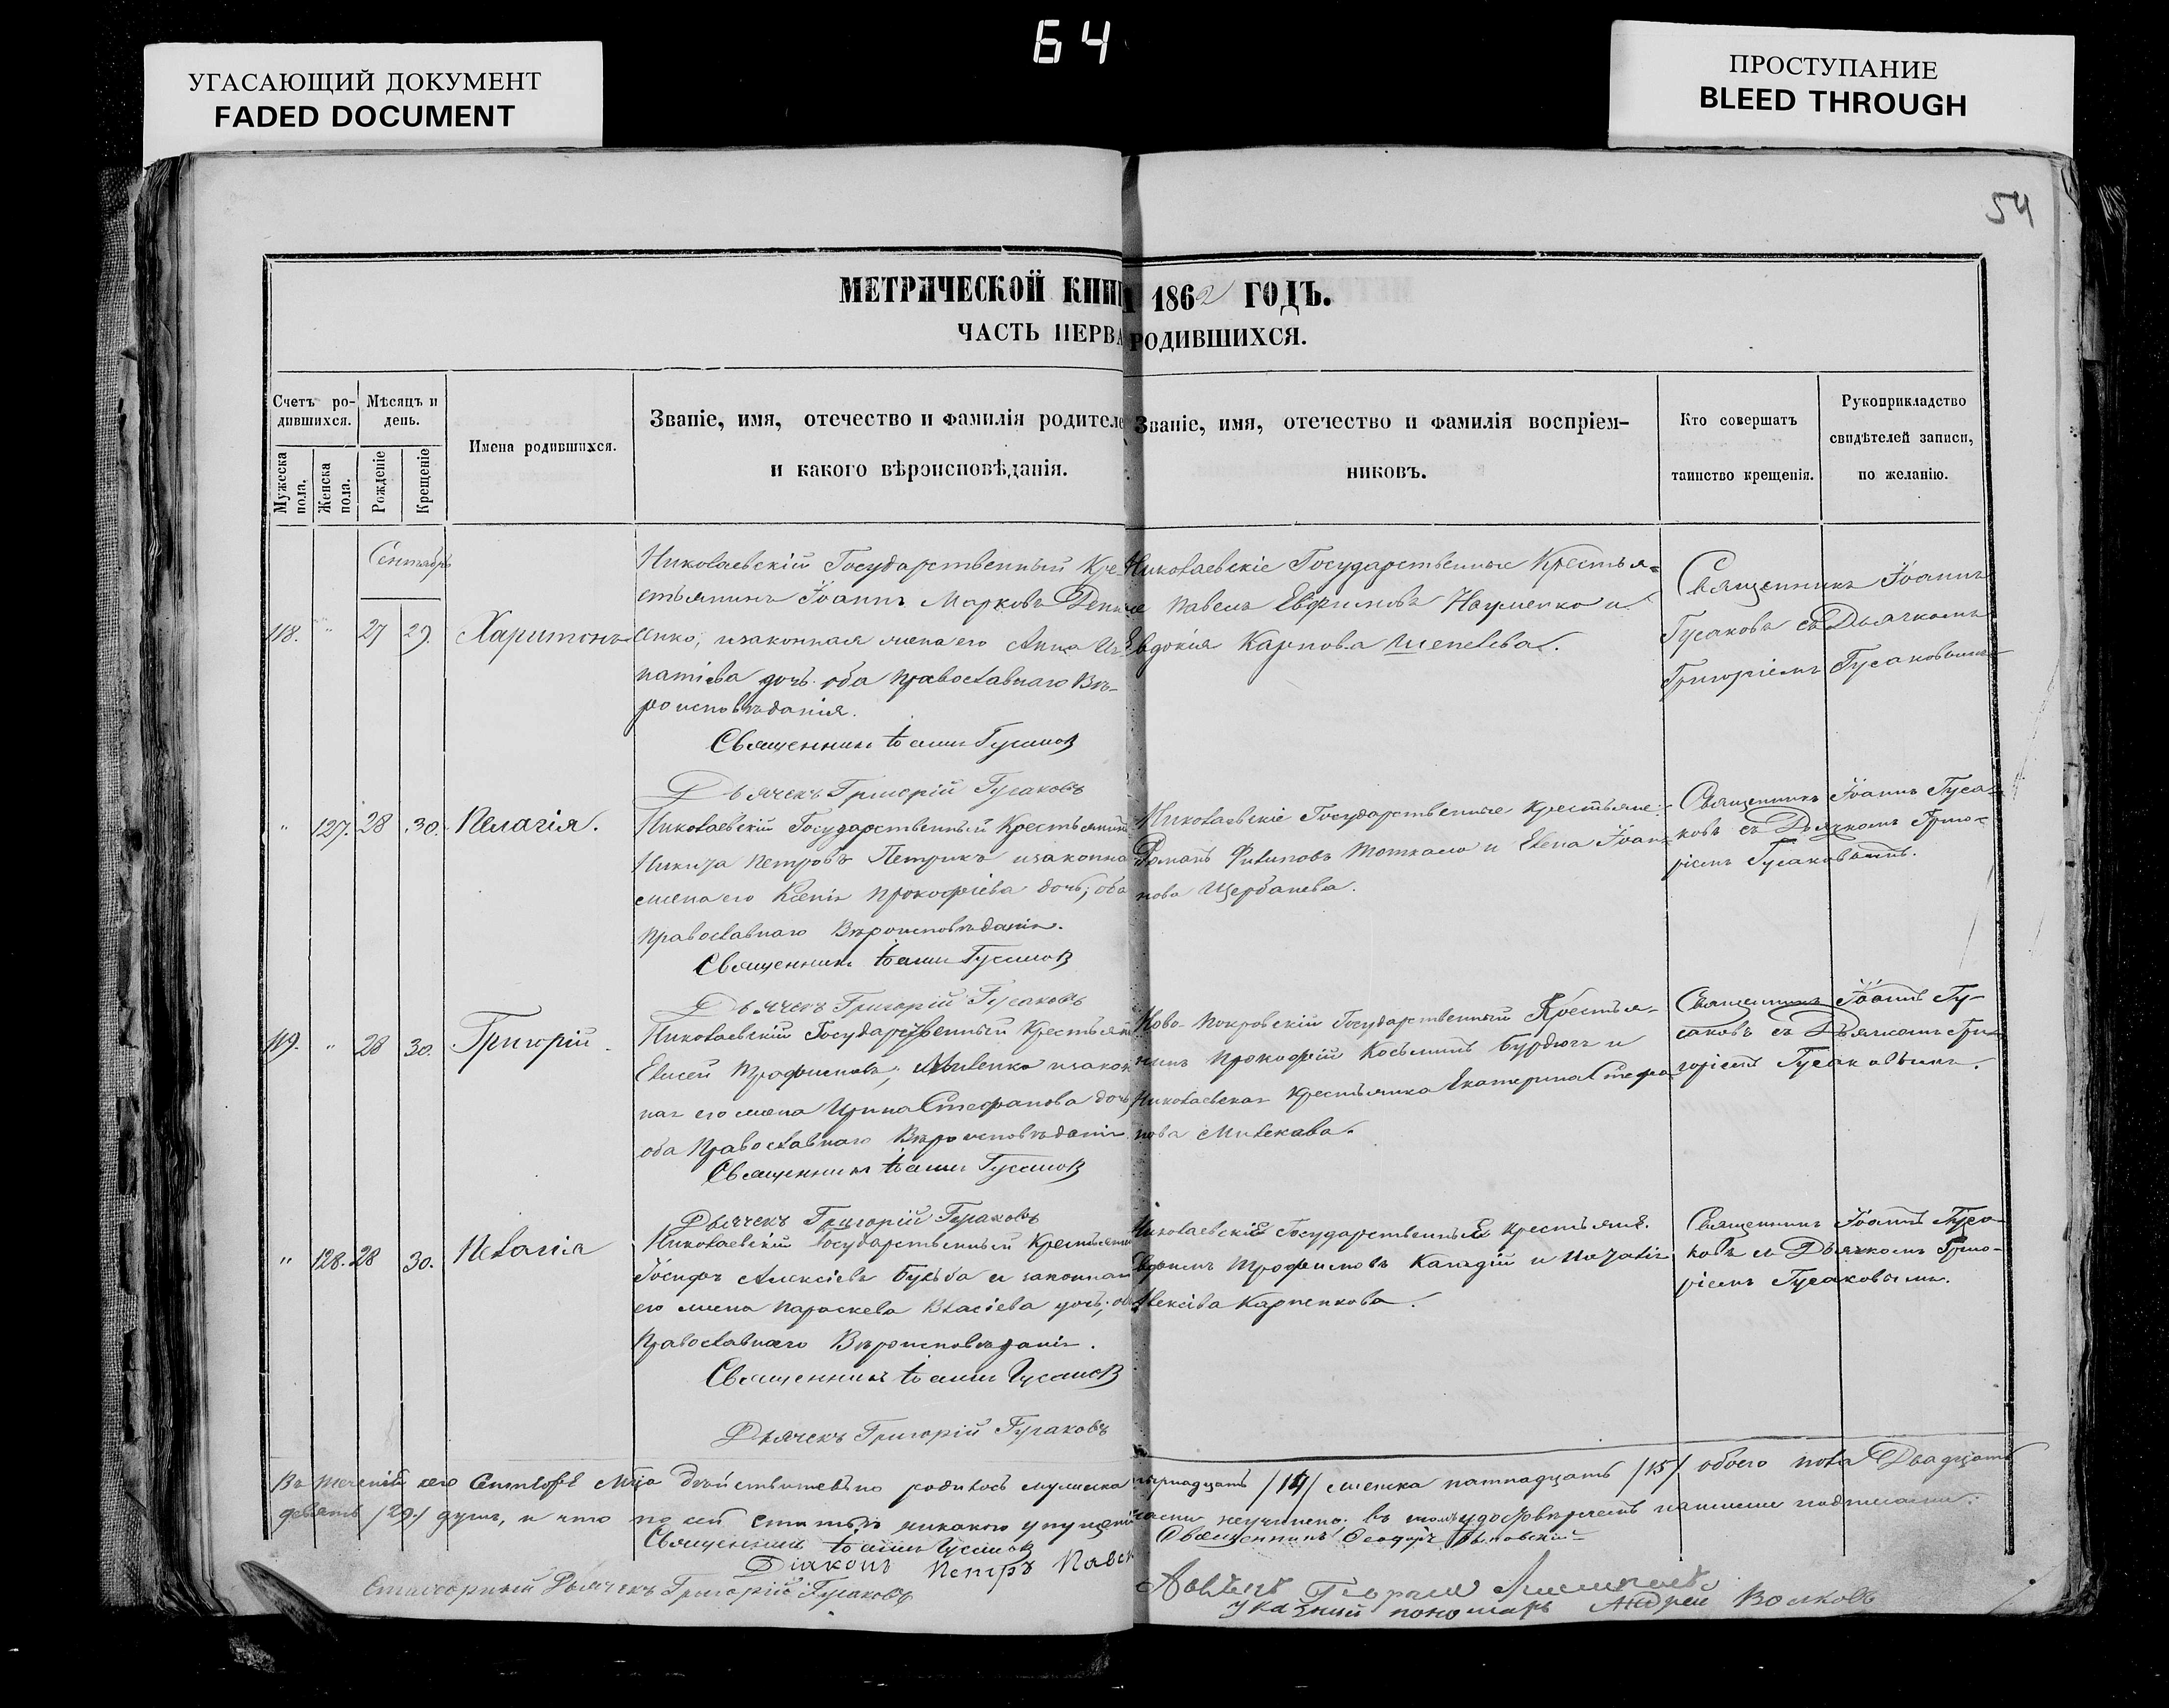 64
УГАСАЮЩИЙ ДОКУМЕНТ
FADED DOCUMENT
ПРОСТУПАНИЕ
BLEED THROUGH
54
МЕТРИЧЕСКОЙ КНИ 1862 ГОДЪ.
ЧАСТЬ ПЕРВА РОДИВШИХСЯ.
Счетъ ро-
дившихся.
Мужеска пола.
Женска пола.
Мѣсяцъ и
день.
Рожденіе
Крещеніе
Имена родившихся.
Званіе, имя, отечество и фамилія родителе
и какого вѣроисповѣданія.
Званіе, имя, отечество и фамилія воспріем-
никовъ.
Кто совершатъ
таинство крещенія.
Рукоприкладство
свидѣтелей записи,
по желанію.
Сентябрь
118. " 27 29. Харитонъ
Николаевскій Государственный Кре-
стьянинъ Іоаннъ Марковъ
енко, изаконная жена его Анна Иг-
натіева дочь. оба православнаго Вѣ-
роисповѣданія.
Священникъ Іоаннъ Гусаковъ
Дьячекъ Григорій Гусаковъ
Николаевскіе Государственные Крестья-
не Павелъ Евфимовъ Науменко и
Евдокія Карпова Шепелева.
Священникъ Іоаннъ
Гусаковъ съ Дьячкомъ
Григоріемъ Гусаковымъ
" 127. 28 30. Пелагія.
Николаевскій Государственный Крестьянинъ
Никита Петровъ Петрикъ изаконна
жена его Ксенія Прокофіева дочь, оба
православнаго Вѣроисповѣданія.
Священникъ Іоаннъ Гусаковъ
Дьячекъ Григорій Гусаковъ
Николаевскіе Государственные Крестьяне:
Романъ Филиповъ и Елена Іоан-
нова Щербанева.
Священникъ Іоаннъ Гуса-
ковъ съ Дьячкомъ Григо-
ріемъ Гусаковымъ.
119. " 28 30. Григорій.
Николаевскій Государственный Крестьян
Елисей Трофимовъ, Миленко изакон
ная его жена Ирина Стефанова дочь,
оба Православнаго Вѣроисповѣданія
Священникъ Іоаннъ Гусаковъ
Дьячекъ Григорій Гусаковъ
Ново-Покровскій Государственный Крестья-
нинъ Прокофій Косьминъ Бурдюгъ и
Николаевская крестьянка Екатерина Стефа
нова
Священникъ Іоаннъ Гу-
саковъ съ Дьячкомъ Гри-
горіемъ Гусаковымъ.
" 128. 28 30. Пелагія
Николаевскій Государственный Крестьянинъ
Іосифъ Алексіевъ и законная
его жена Параскева Власіева дочь, оба
Православнаго Вѣроисповѣданія.
Священникъ Іоаннъ Гусаковъ
Дьячекъ Григорій Гусаковъ
Николаевскіе Государственные крестьяне.
Евфимъ Трофимовъ и
Алексіева Карпенкова.
Священникъ Іоаннъ Гуса-
ковъ съ Дьячкомъ Григо-
ріемъ Гусаковымъ.
Въ теченіи сего Сентября Мца дѣйствительно родилось мужеска четырнадцать /14/ женска пятнадцать /15/ обоего пола Двадцать
девять /29/ душъ, и что по сей статьѣ никакого упущенія нами неучинено. въ томъ удостовѣряемъ нашими подписами:
Священникъ Іоаннъ Гусаковъ
Священникъ Ѳеодоръ
Діаконъ Петръ
Дьячекъ Григорій Гусаковъ
указный пономарь Андрей Волковъ